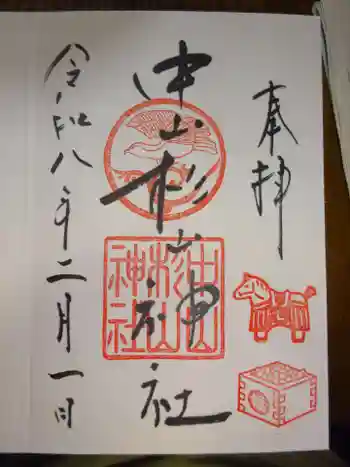 奉拝
中山杉山神社
中山杉山神社
令和八年二月一日